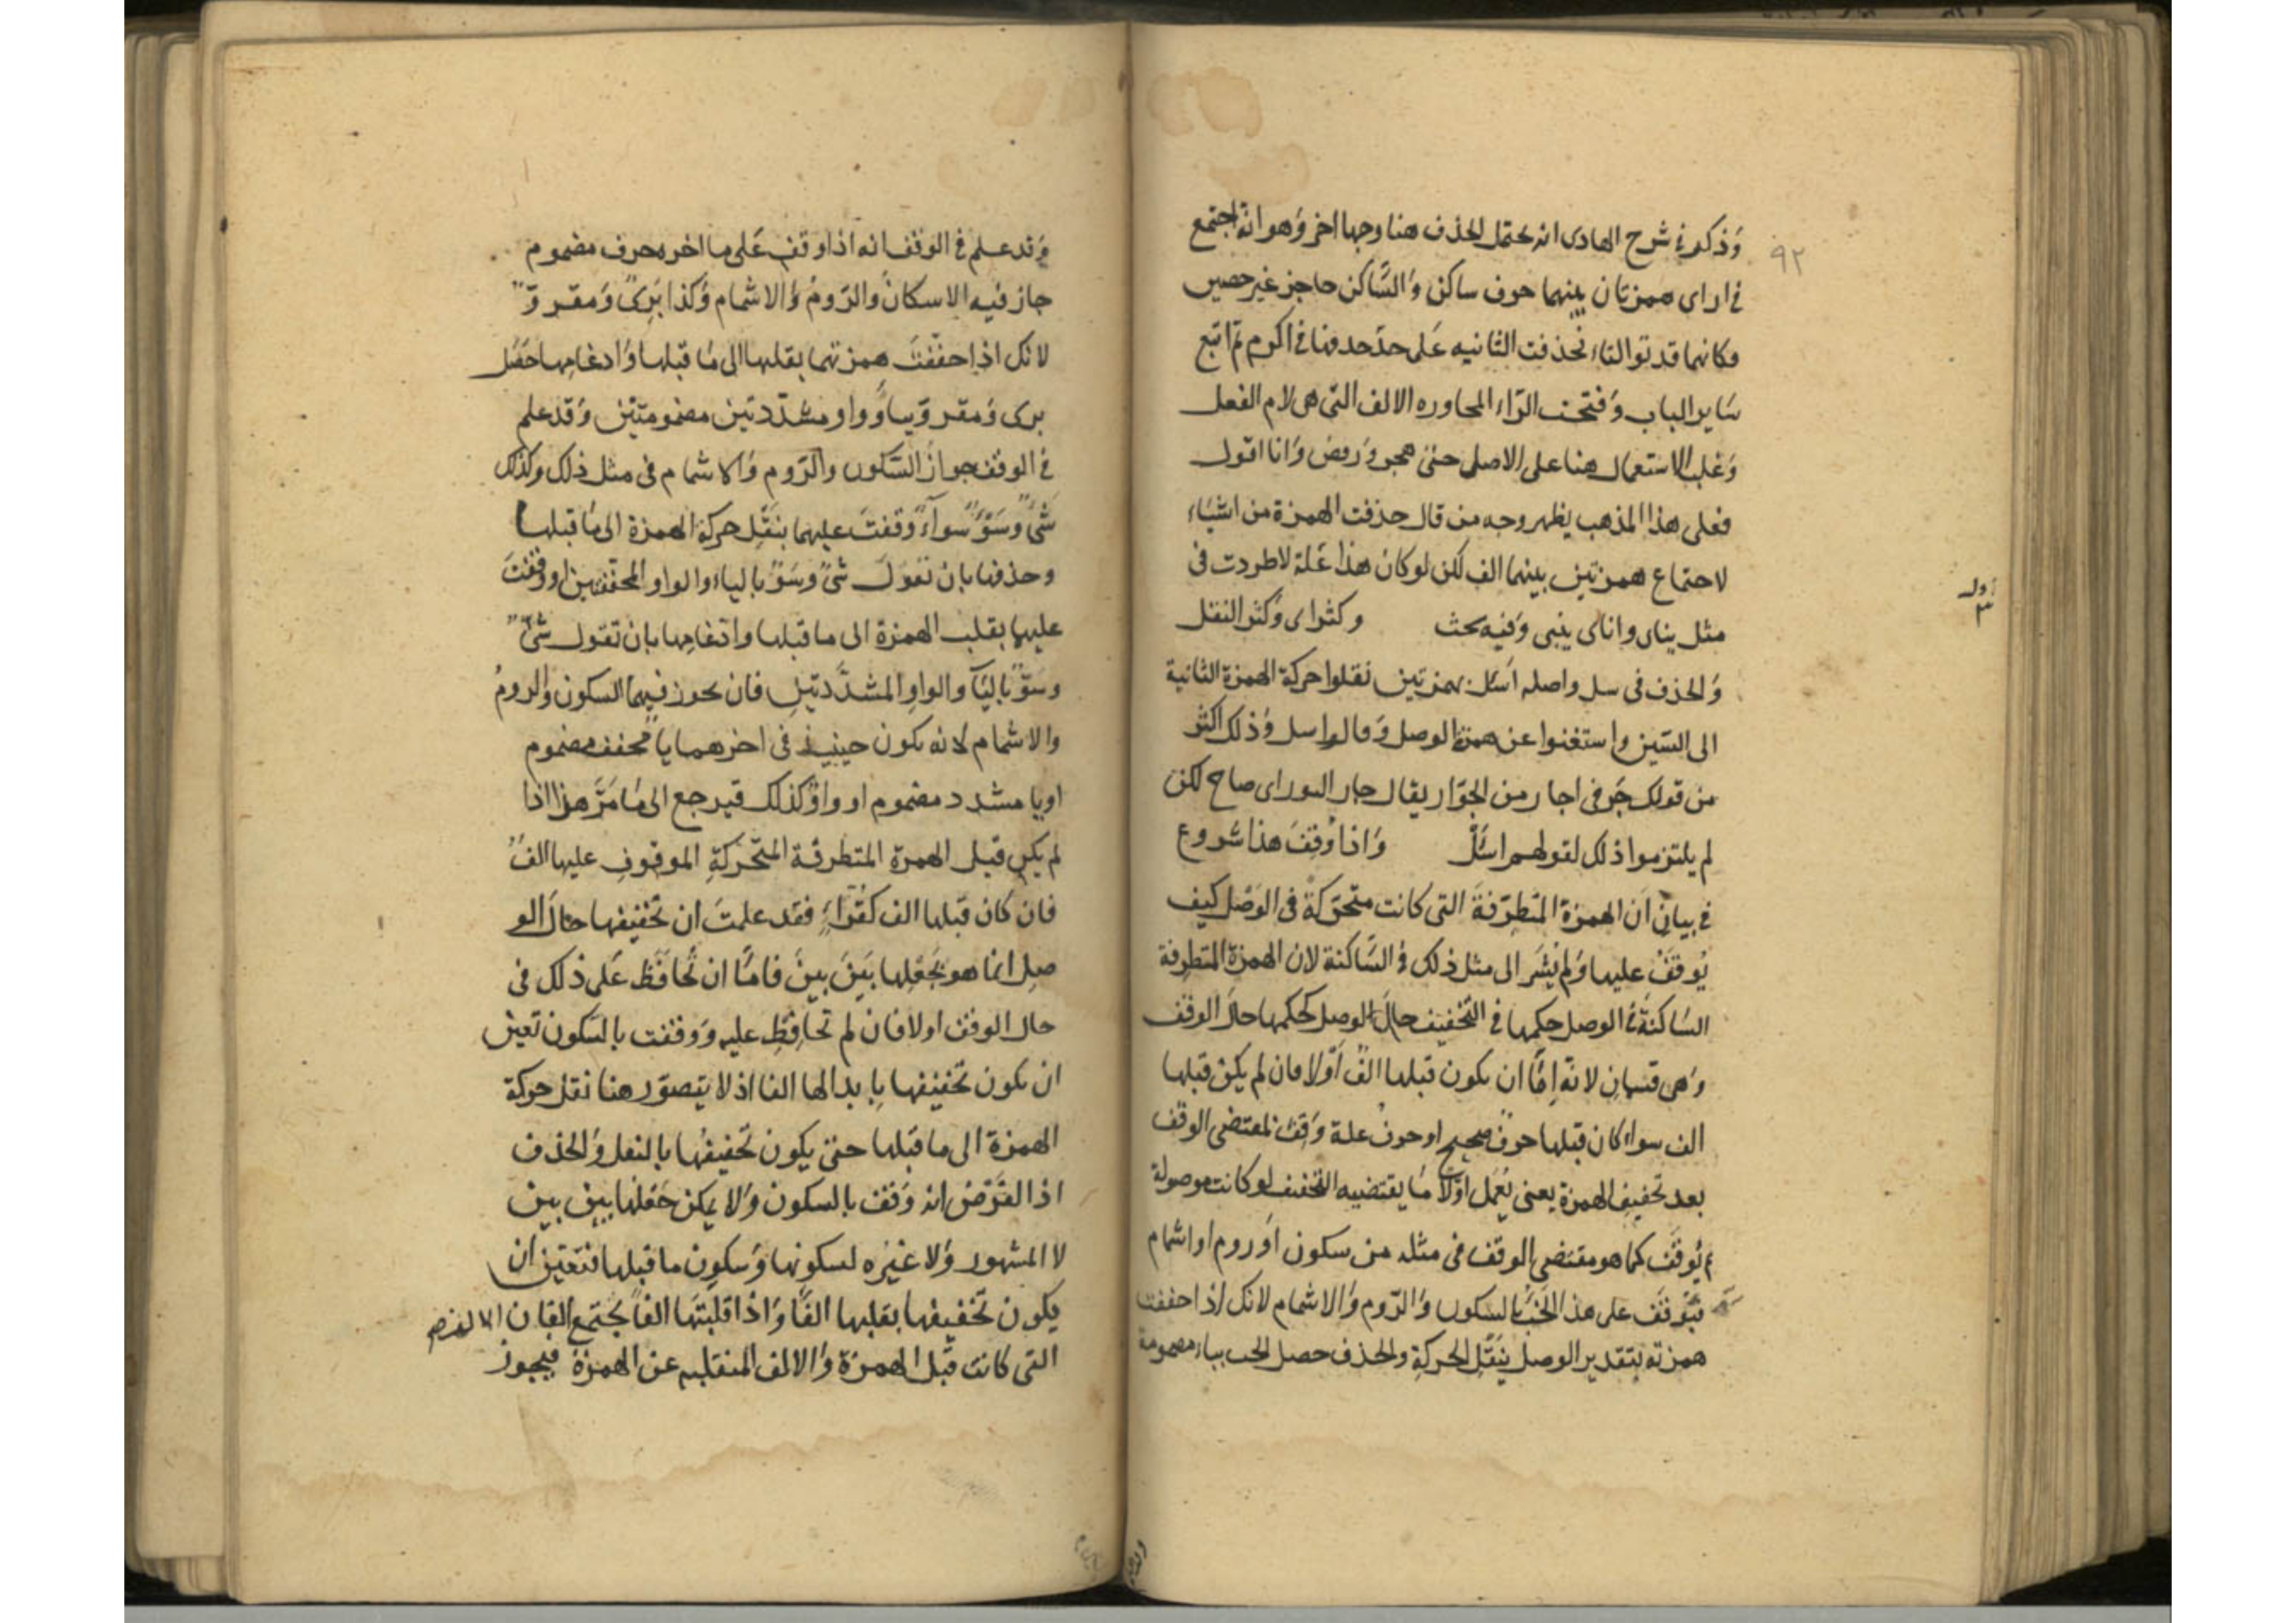 ٩٢
وذكر في شرح الهادى انه يحتمل الحذف هنا وجها اخر وهو انه اجتمع
في اراى همزتان بينهما حرف ساكن والساكن حاجز غير حصين
فكانهما قد توالتا فحذفت الثانيه على حد حذفها في اكرم ثم اتبع
ساير الباب وفتحت الراء المجاوره الالف التي هي لام الفعل
وغلب الاستعمال هنا على الاصل حتى هجر ورفض وانا اقول
فعلى هذا المذهب يظهر وجه من قال حذفت الهمزة من اشياء
لاجتماع همزتين بينهما الف لكن لو كان هذا علة لاطردت في
مثل يناى واناى ينبى وفيه بحث وكثر اى وكثر النقل
والحذف في سل واصله اسئل بهمزتين نقلوا حركة الهمزة الثانية
الى السين واستغنوا عن همزة الوصل وقالوا سل وذلك اكثر
من قولك جر في اجار من الجوار يقال جار الثور اى صاح لكن
لم يلتزموا ذلك لقولهم اسئل واذا وقف هذا شروع
في بيان ان الهمزة المتطرفة التي كانت متحركة في الوصل كيف
يوقف عليها ولم يشر الى مثل ذلك في الساكنة لان الهمزة المتطرفة
الساكنة في الوصل حكمها في التخفيف حال الوصل كحكمها حال الوقف
وهي قسمان لانه اما ان يكون قبلها الف او لا فان لم يكن قبلها
الف سواء كان قبلها حرف صحيح او حرف علة وقف لمقتضى الوقف
بعد تخفيف الهمزة يعنى يعمل اولا ما يقتضيه التخفيف لو كانت موصولة
ثم يوقف كما هو مقتضى الوقف في مثله من سكون او روم او اشمام
فيوقف على هذا الخب بالسكون والروم والاشمام لانك اذا خففت
همزته بتقدير الوصل بنقل الحركة والحذف حصل الخب بباء مضمومة
وقد علم في الوقف انه اذا وقف على ما اخره حرف مضموم
جاز فيه الاسكان والروم والاشمام وكذا برى ومقرو
لانك اذا خففت همزتهما بقلبها الى ما قبلها وادغامها حصل
برى ومقرو بياء وواو مشددتين مضمومتين وقد علم
في الوقف جواز السكون والروم والاشمام في مثل ذلك وكذلك
شئ وسوء سواء وقفت عليهما بنقل حركة الهمزة الى ما قبلها
وحذفها بان تقول شى وسو بالياء والواو المخففتين او وقفت
عليها بقلب الهمزة الى ما قبلها وادغامها بان تقول شى
وسو بالياء والواو المشددتين فان يجوز فيهما السكون والروم
والاشمام لانه يكون حينئذ في اخرهما ياء مخفف مضموم
او يا مشدد مضموم او واو كذلك فيرجع الى ما مر هذا اذا
لم يكن قبل الهمزة المتطرفة المتحركة الموقوف عليها الف
فان كان قبلها الف كقراء فقد علمت ان تخفيفها حال الو
صل انما هو بجعلها بين بين فاما ان تحافظ على ذلك في
حال الوقف او لا فان لم تحافظ عليه ووقفت بالسكون تعين
ان يكون تخفيفها بابدالها الفا اذ لا يتصور هنا نقل حركة
الهمزة الى ما قبلها حتى يكون تخفيفها بالنقل والحذف
اذ الفرض انه وقف بالسكون ولا يمكن جعلها بين بين
لا المشهور ولا غيره لسكونها وسكون ما قبلها فتعين ان
يكون تخفيفها بقلبها الفا واذا قلبتها الفا يجتمع الفان الالف
التي كانت قبل الهمزة والالف المنقلبه عن الهمزة فيجوز